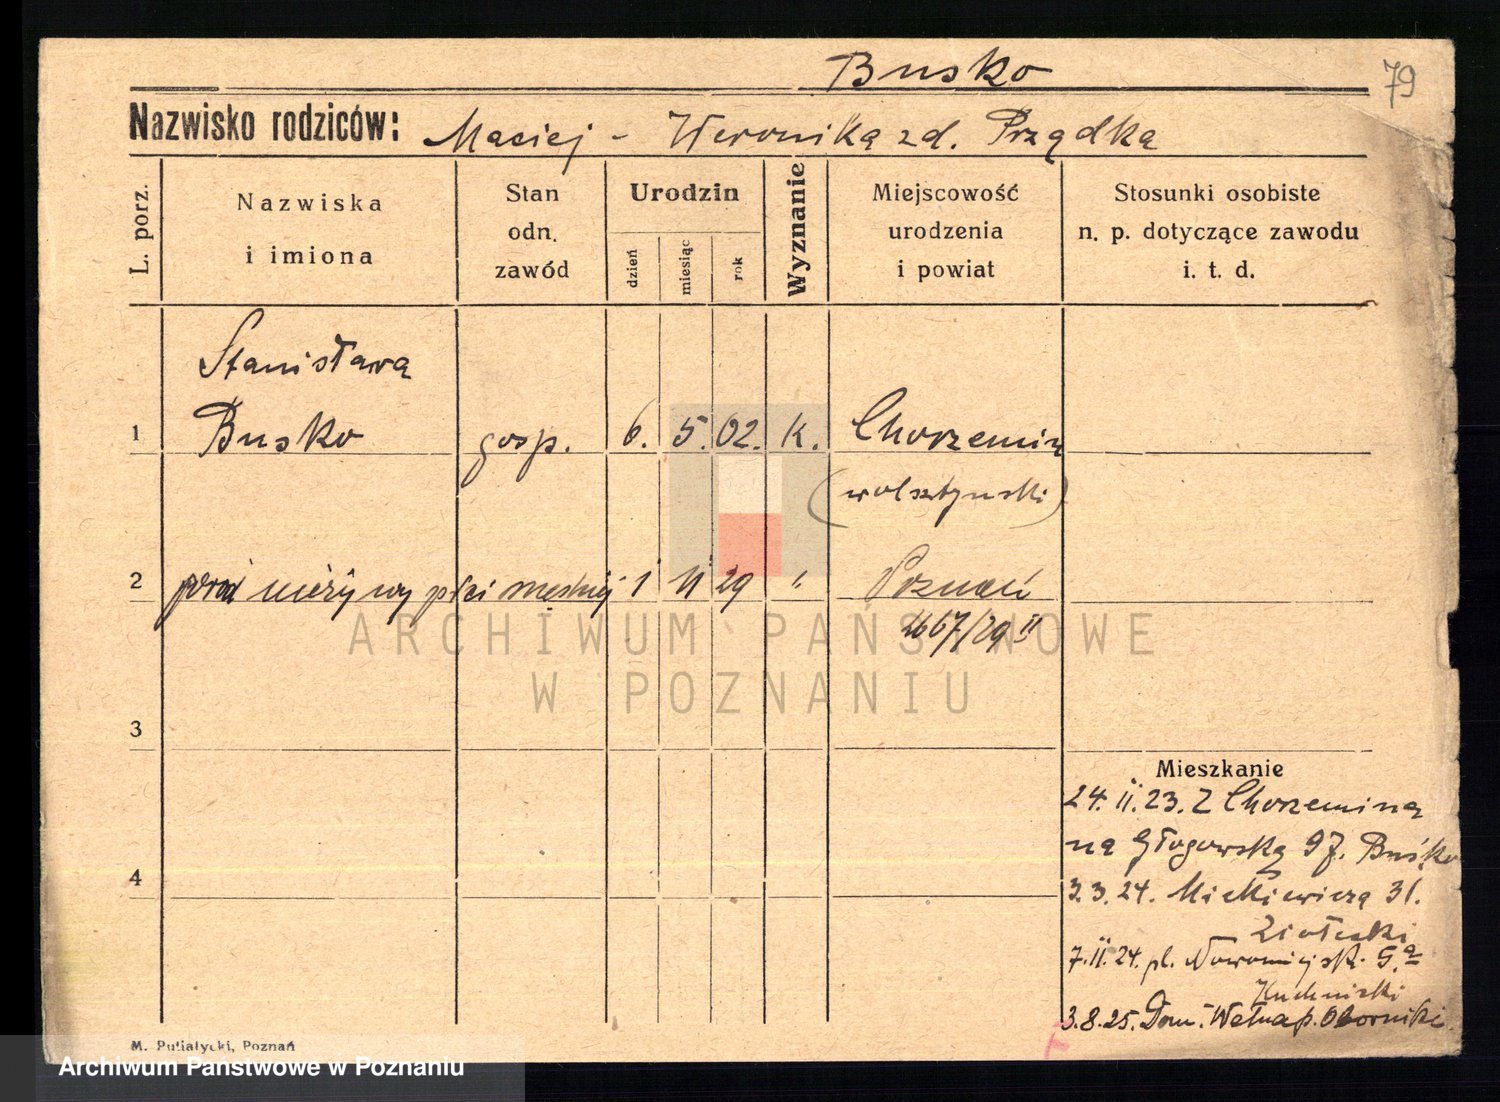 Busko
79
Nazwisko rodziców: Maciej - Weronika zd. Prządka
L. porz.
Nazwiska
i imiona
Stan
odn.
zawód
Urodzin
dzień
miesiąc
rok
Wyznanie
Miejscowość
urodzenia
i powiat
Stosunki osobiste
n. p. dotyczące zawodu
i. t. d.
Stanisława
1 Busko gosp. 6. 5. 02. K. Chorzemin
(wolsztyński)
2 poród nieżywy płci męskiej 1 11 29 " Poznań
2667/29 II
ARCHIWUM PAŃSTWOWE
W POZNANIU
3
Mieszkanie
24. II. 23. Z Chorzemina
na Głogowską 97. Buśko
4
3.3.24. Mickiewicza 31.
7.II.24. pl. Nowomiejsk. 5a
3.8.25. Dom. Wełna p. Oborniki
M. Putiatycki, Poznań
Archiwum Państwowe w Poznaniu